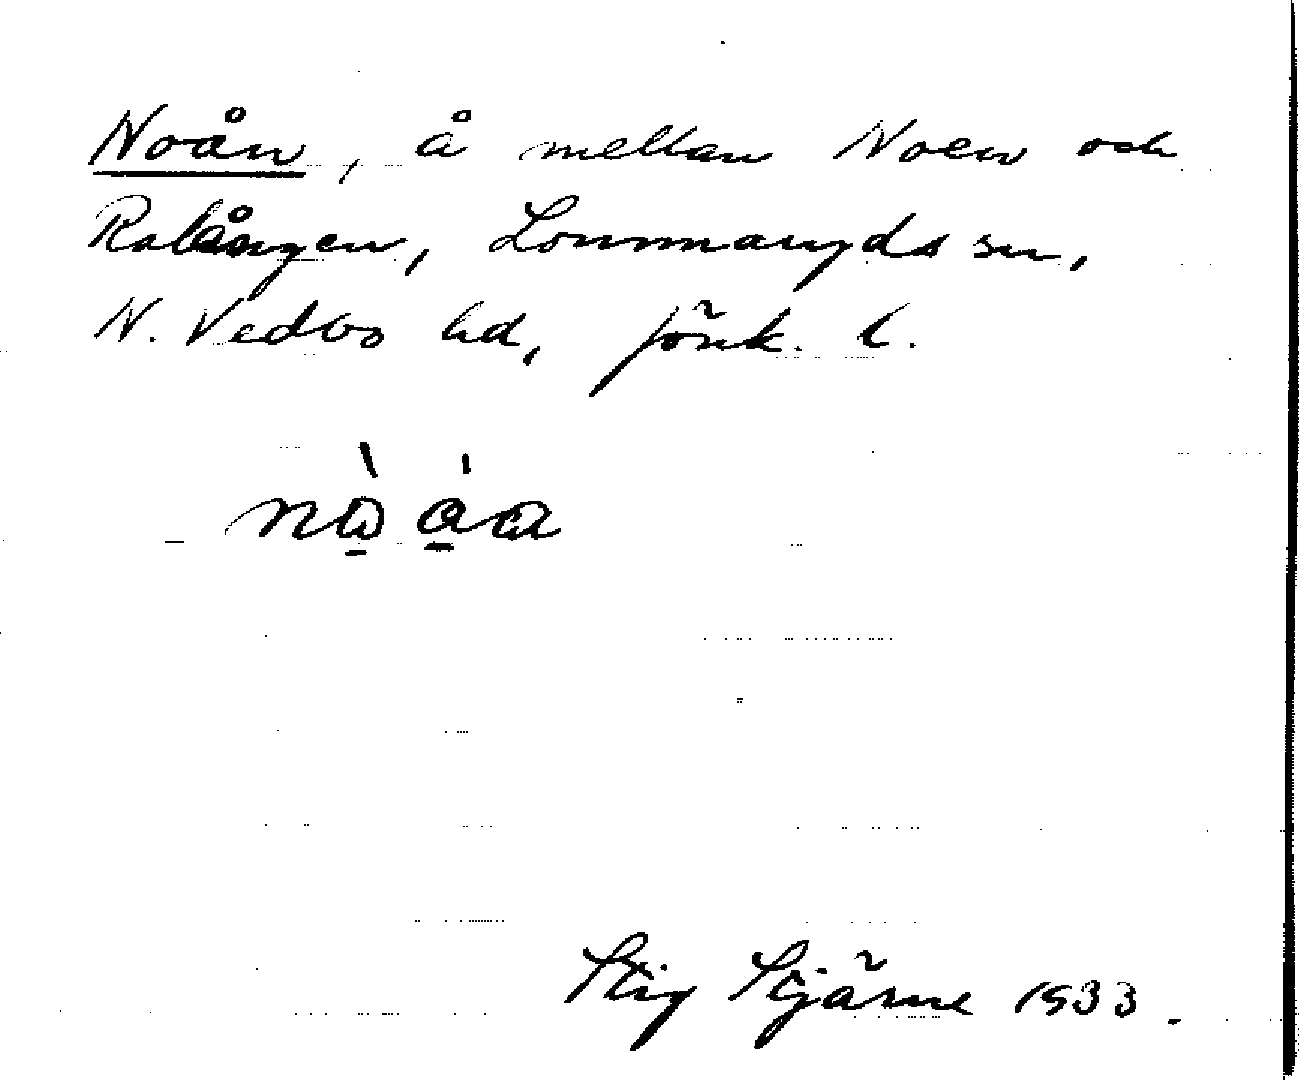 Noån, å mellan Noen och
Ralången, Lommaryds sn,
N. Vedbo hd, Jönk. l.
Stig Stjärne 1933.